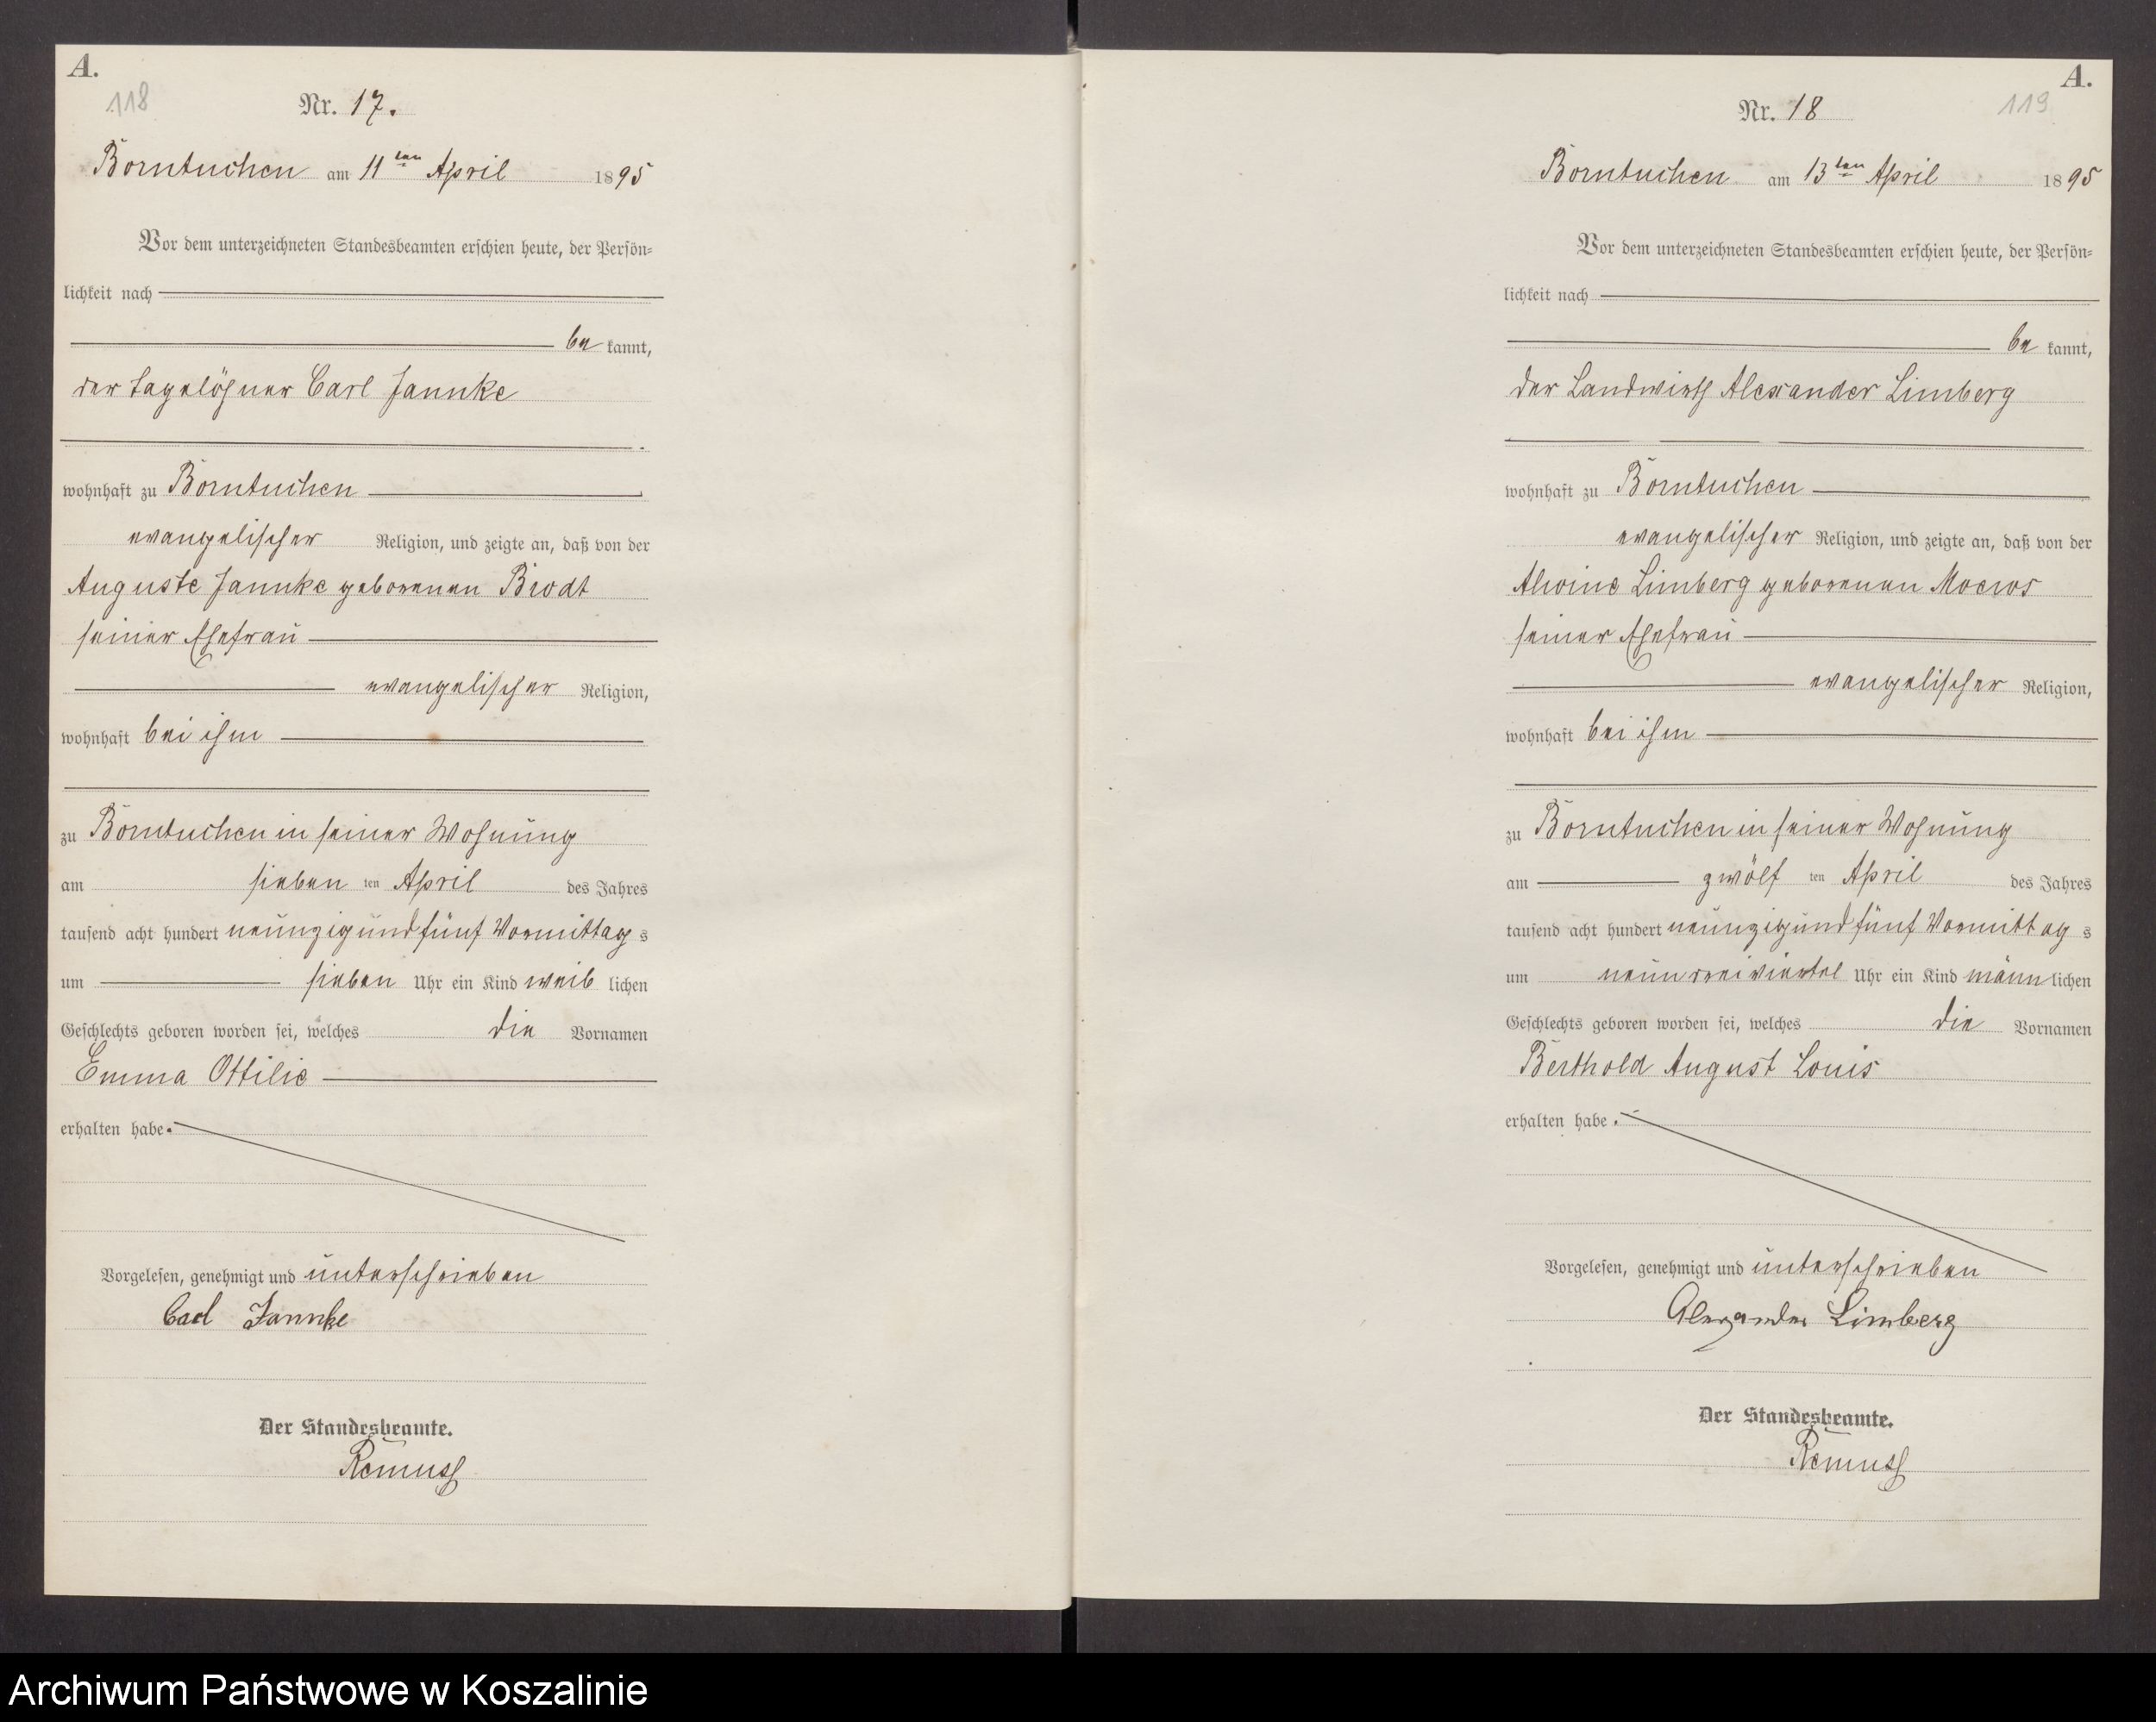 A.
118
Nr. 17.
Borntuchen am 11ten April 1895
Vor dem unterzeichneten Standesbeamten erschien heute, der Persön=
lichkeit nach
be kannt,
der Tagelöhner Carl Jannke
wohnhaft zu Borntuchen
evangelischer Religion, und zeigte an, daß von der
Auguste Jannke geborenen Brodt
seiner Ehefrau
evangelischer Religion,
wohnhaft bei ihm
zu Borntuchen in seiner Wohnung
am sieben ten April des Jahres
tausend acht hundert neunzig und fünf Vormittag s
um sieben Uhr ein Kind weib lichen
Geschlechts geboren worden sei, welches die Vornamen
Emma Ottilie
erhalten habe.
Vorgelesen, genehmigt und unterschrieben
Carl Jannke
Der Standesbeamte.
Remus
A.
119
Nr. 18
Borntuchen am 13ten April 1895
Vor dem unterzeichneten Standesbeamten erschien heute, der Persön=
lichkeit nach
be kannt,
der Landwirth Alexander Limberg
wohnhaft zu Borntuchen
evangelischer Religion, und zeigte an, daß von der
Alwine Limberg geborenen
seiner Ehefrau
evangelischer Religion,
wohnhaft bei ihm
zu Borntuchen in seiner Wohnung
am zwölf ten April des Jahres
tausend acht hundert neunzig und fünf Vormittag s
um neun dreiviertel Uhr ein Kind männ lichen
Geschlechts geboren worden sei, welches die Vornamen
Berthold August Louis
erhalten habe.
Vorgelesen, genehmigt und unterschrieben
Alexander Limberg
Der Standesbeamte.
Remus
Archiwum Państwowe w Koszalinie